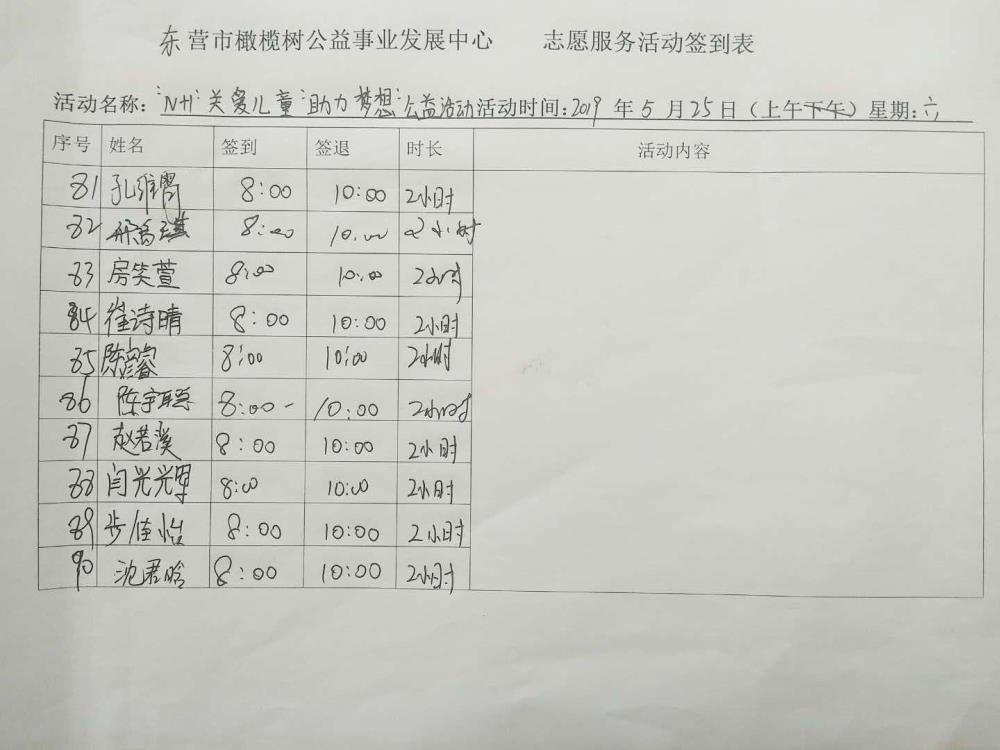 东营市橄榄树公益事业发展中心 志愿服务活动签到表
活动名称:"N+1"关爱儿童"助力梦想"公益活动活动时间:2019年5月25日(上午下午)星期:六
序号 姓名 签到 签退 时长 活动内容
81 孔维霄 8:00 10:00 2小时
82 8:00 10:00 2小时
83 房笑萱 8:00 10:00 2小时
84 崔诗晴 8:00 10:00 2小时
85 陈 8:00 10:00 2小时
86 陈宇聪 8:00- 10:00 2小时
87 赵若溪 8:00 10:00 2小时
88 闫光 8:00 10:00 2小时
89 步佳怡 8:00 10:00 2小时
90 沈君晗 8:00 10:00 2小时